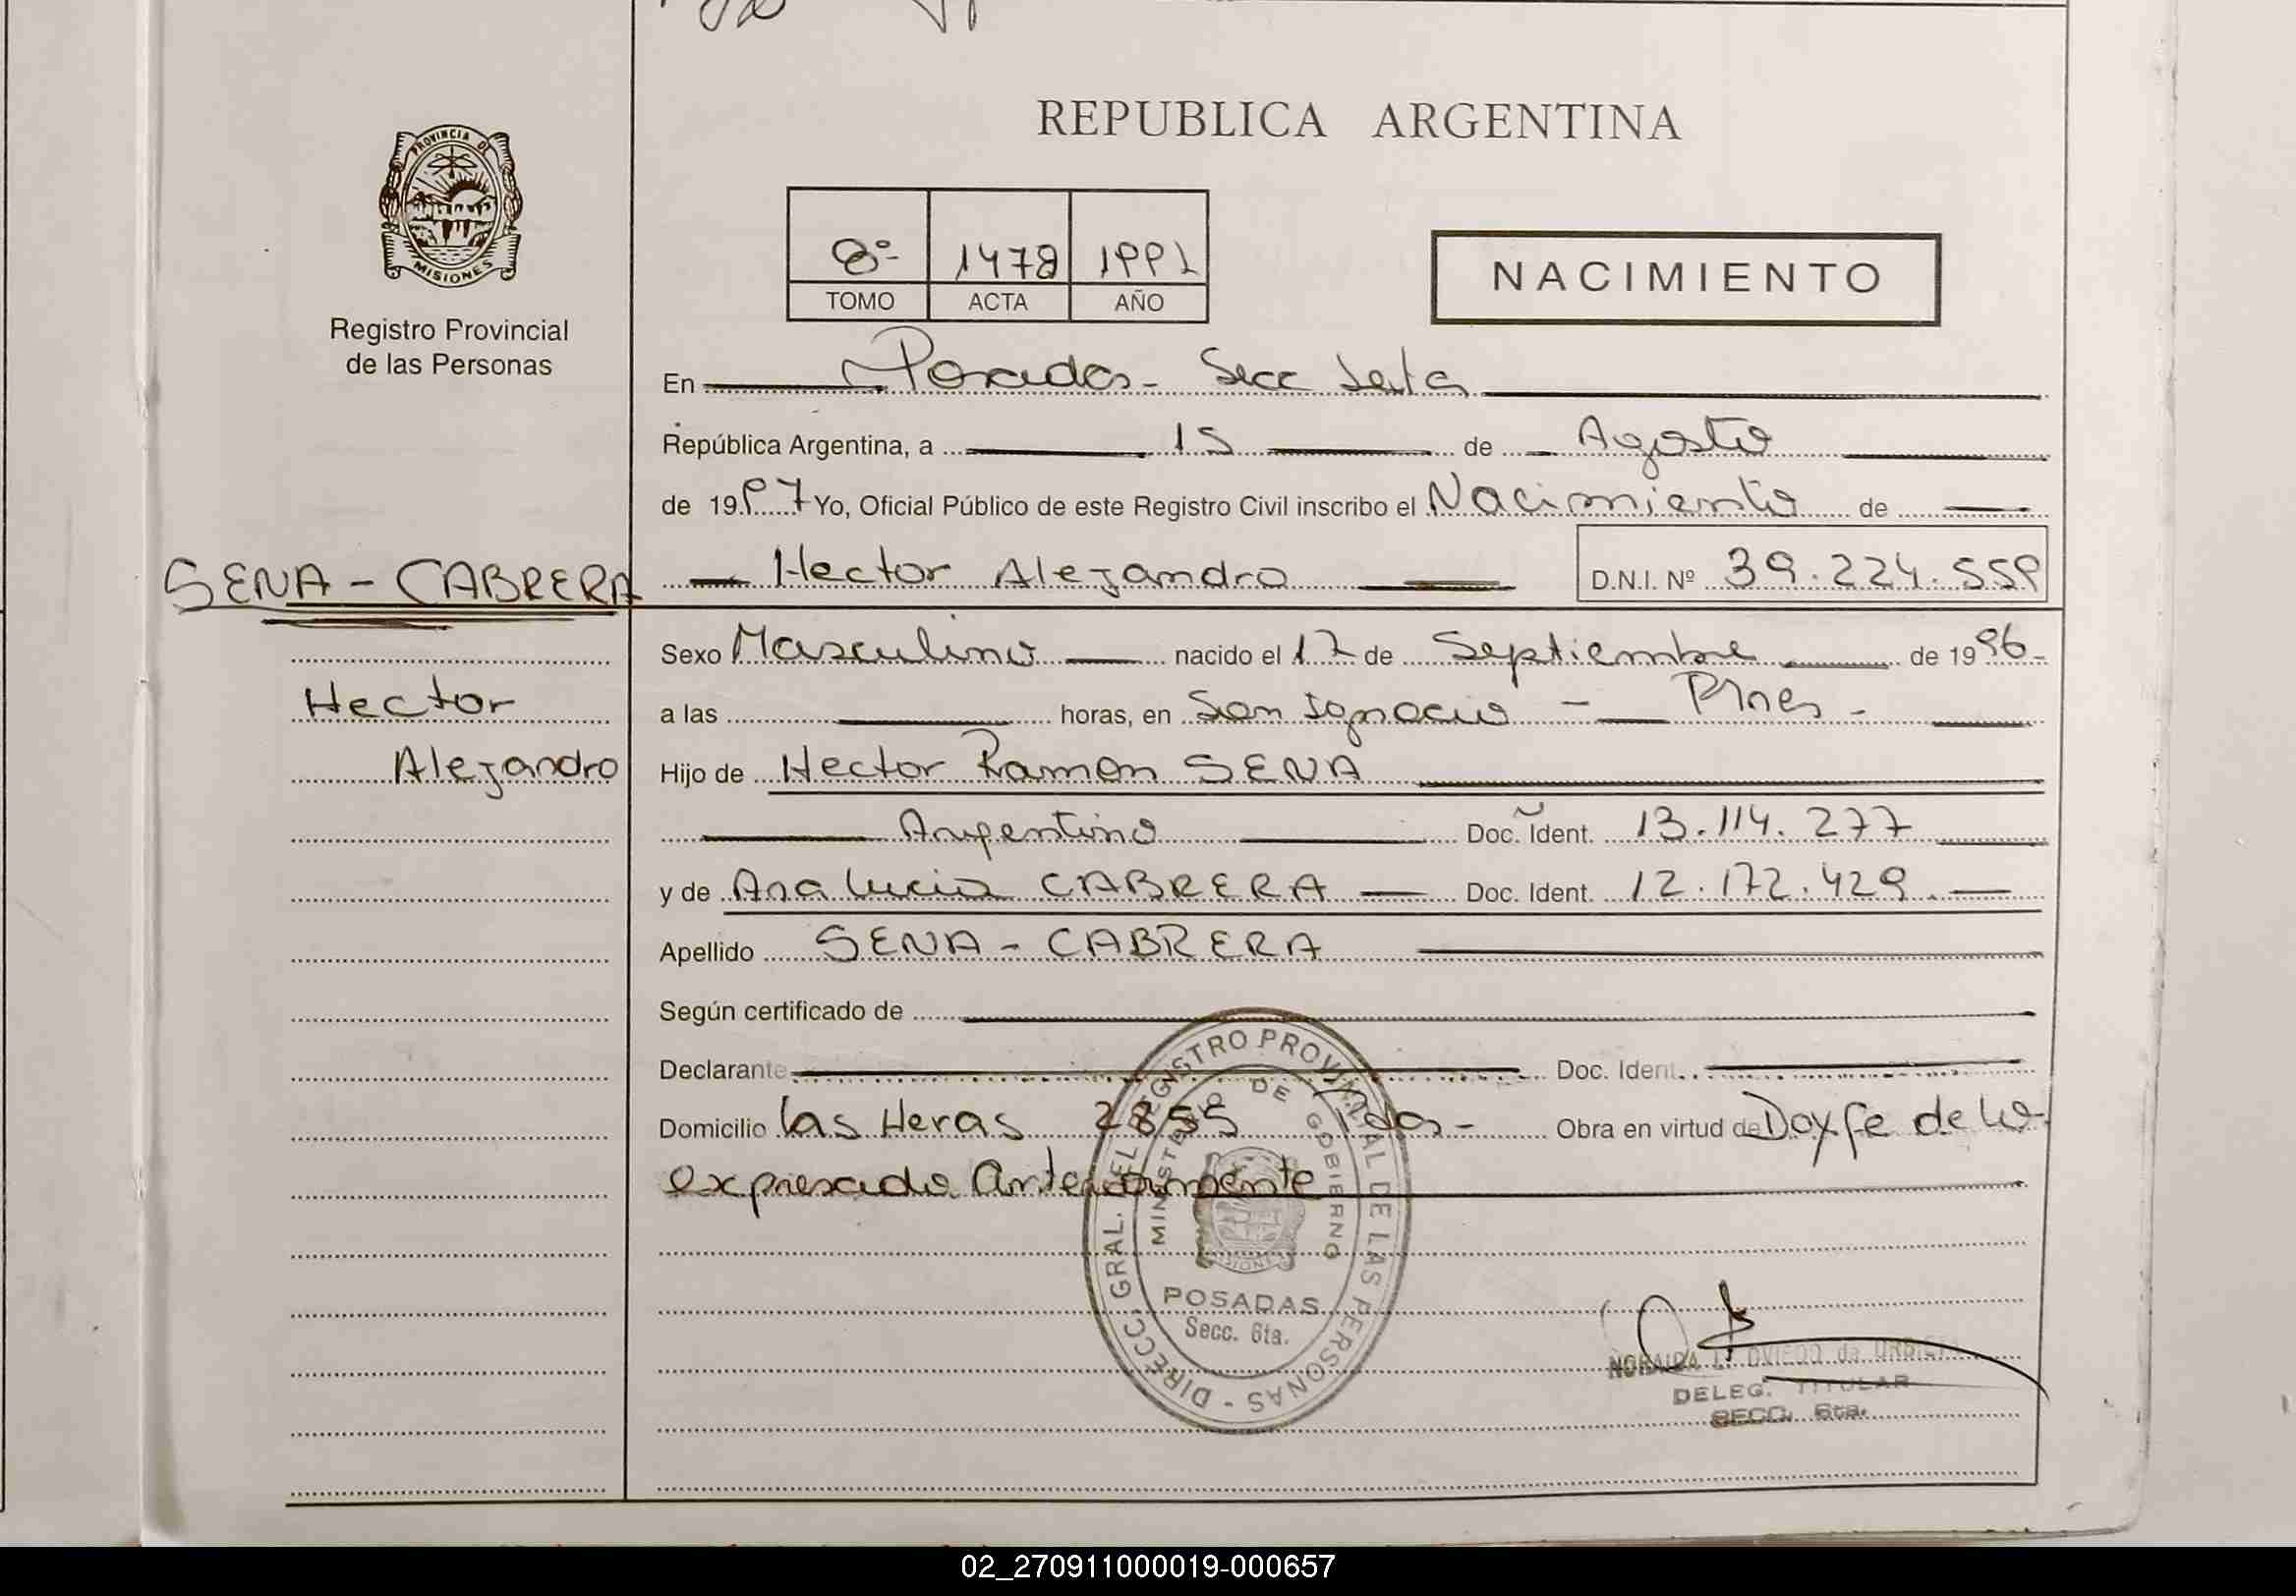 REPUBLICA ARGENTINA
PROVINCIA DE
MISIONES
Registro Provincial
de las Personas
8º 1478 1991
TOMO ACTA AÑO
NACIMIENTO
En Posadas - Secc Sexta
República Argentina, a 15 de Agosto
de 1997 Yo, Oficial Público de este Registro Civil inscribo el Nacimiento de
SENA - CABRERA
Hector Alejandro D.N.I. Nº 39.224.559
Sexo Masculino nacido el 17 de Septiembre de 1996
Hector
a las horas, en San Ignacio - Mnes -
Alejandro
Hijo de Hector Ramon SENA
Argentino Doc. Ident. 13.114.277
y de Ana Lucia CABRERA Doc. Ident. 12.172.429
Apellido SENA - CABRERA
Según certificado de
Declarante Doc. Ident.
Domicilio las Heras 2855 Pdas - Obra en virtud de Doy fe de lo
expresado Anteriormente
DIRECC. GRAL. DEL REGISTRO PROVINCIAL DE LAS PERSONAS -
MINISTERIO DE GOBIERNO
MISIONES
POSADAS
Secc. 6ta.
NORAIDA L. OVIEDO de
DELEG. TITULAR
SECC. 6ta.
02_270911000019-000657